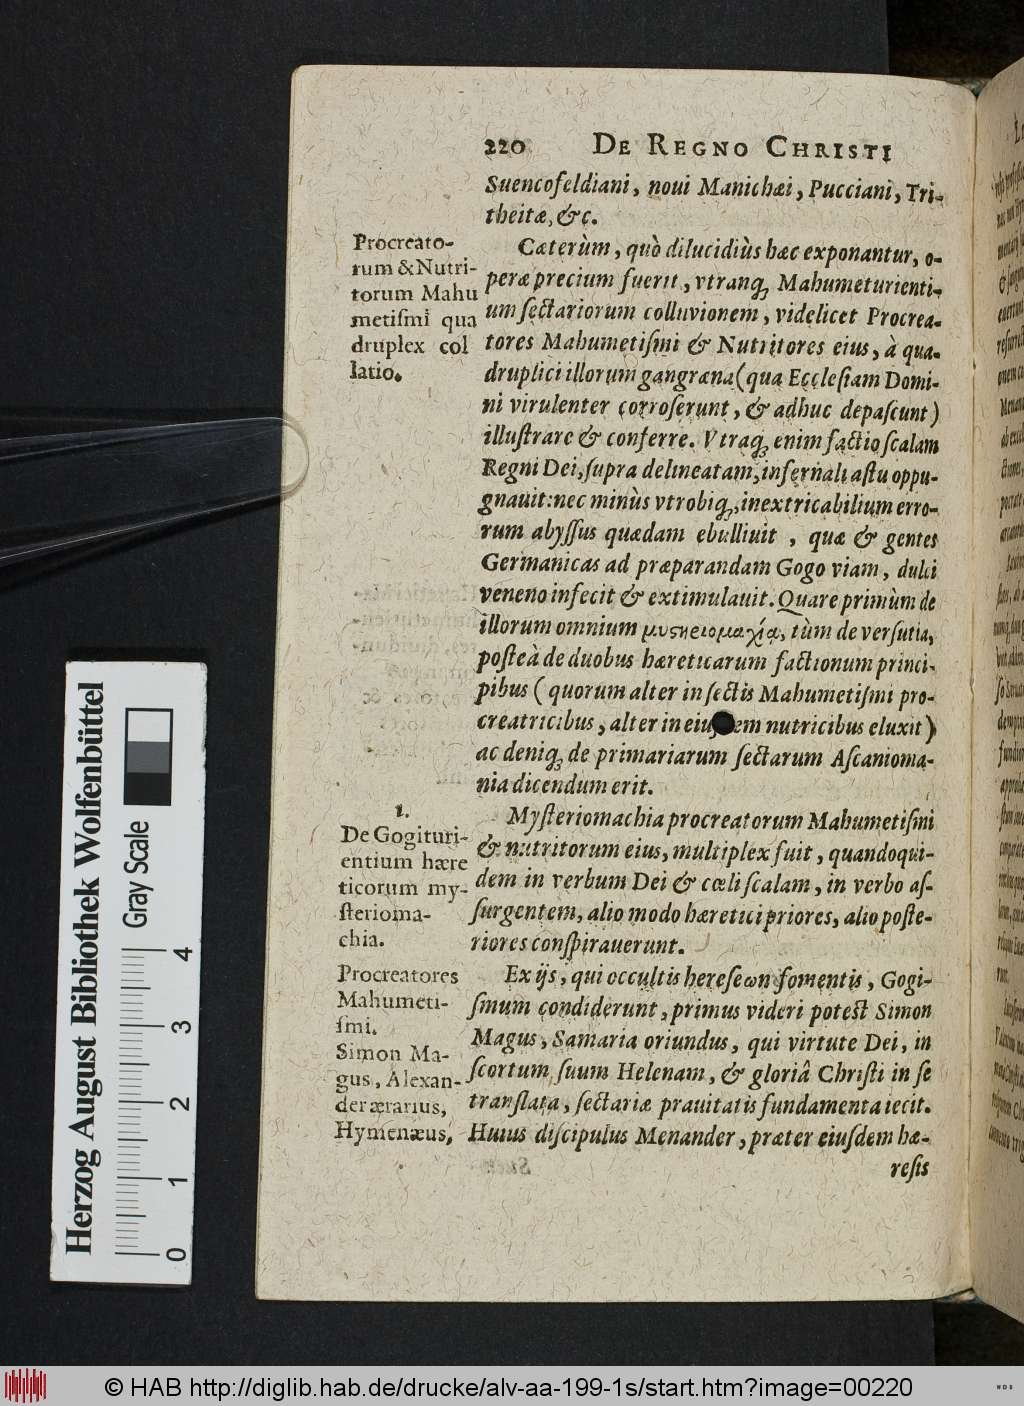 220 DE REGNO CHRISTI
Suencofeldiani, noui Manichæi, Pucciani, Tri-
theitæ, &c.
Procreato-
rum & Nutri-
torum Mahu
metiſmi qua
druplex col
latio.
Cæterùm, quò dilucidiùs hæc exponantur, o-
peræ precium fuerit, vtranq́; Mahumeturienti-
um ſectariorum colluvionem, videlicet Procrea-
tores Mahumetiſmi & Nutritores eius, à qua-
druplici illorum gangræna (qua Eccleſiam Domi-
ni virulenter corroſerunt, & adhuc depaſcunt)
illuſtrare & conferre. Vtraq́; enim factio ſcalam
Regni Dei, ſupra delineatam, infernali aſtu oppu-
gnauit: nec minùs vtrobiq́;, inextricabilium erro-
rum abyſſus quædam ebulliuit, quæ & gentes
Germanicas ad præparandam Gogo viam, dulci
veneno infecit & extimulauit. Quare primùm de
illorum omnium μυστηριομαχίᾳ, tùm de verſutia,
poſteà de duobus hæreticarum factionum princi-
pibus (quorum alter in ſectis Mahumetiſmi pro-
creatricibus, alter in eiuſ em nutricibus eluxit)
ac deniq́; de primariarum ſectarum Aſcanioma-
nia dicendum erit.
1.
De Gogituri-
entium hære
ticorum my-
ſterioma-
chia.
Myſteriomachia procreatorum Mahumetiſmi
& nutritorum eius, multiplex fuit, quandoqui-
dem in verbum Dei & cœli ſcalam, in verbo aſ-
ſurgentem, alio modo hæretici priores, alio poſte-
riores conſpirauerunt.
Procreatores
Mahumeti-
ſmi.
Simon Ma-
gus, Alexan-
der ærarius,
Hymenæus,
Ex ijs, qui occultis hereſεων fomentis, Gogi-
ſmum condiderunt, primus videri poteſt Simon
Magus, Samaria oriundus, qui virtute Dei, in
ſcortum ſuum Helenam, & gloriâ Chriſti in ſe
tranſlata, ſectariæ prauitatis fundamenta iecit.
Huius diſcipulus Menander, præter eiuſdem hæ-
reſis
Herzog August Bibliothek Wolfenbüttel
Gray Scale
0 1 2 3 4
© HAB http://diglib.hab.de/drucke/alv-aa-199-1s/start.htm?image=00220